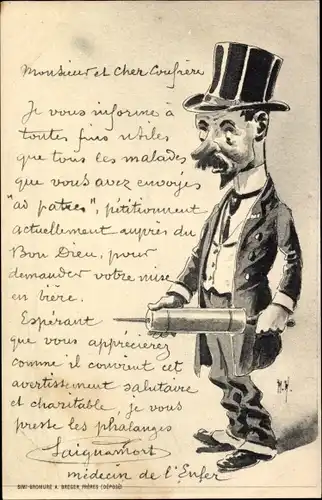 Monsieur et Cher Confrère
Je vous informe à
toutes fins utiles
que tous les malades
que vous avez envoyés
"ad patres", pétitionnent
actuellement auprès du
Bon Dieu, pour
demander votre mise
en bière.
Espérant
que vous apprécierez
comme il convient cet
avertissement salutaire
et charitable, je vous
presse les phalanges
Saignamort
médecin de l'Enfer
SIMI-BROMURE A. BREGER FRÈRES (DÉPOSÉ)